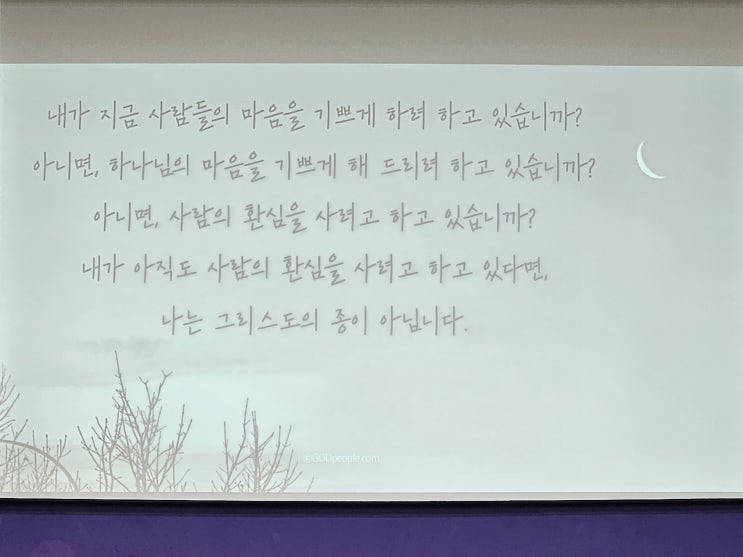 내가 지금 사람들의 마음을 기쁘게 하려 하고 있습니까?
아니면, 하나님의 마음을 기쁘게 해 드리려 하고 있습니까?
아니면, 사람의 환심을 사려고 하고 있습니까?
내가 아직도 사람의 환심을 사려고 하고 있다면,
나는 그리스도의 종이 아닙니다.
©GODpeople.com